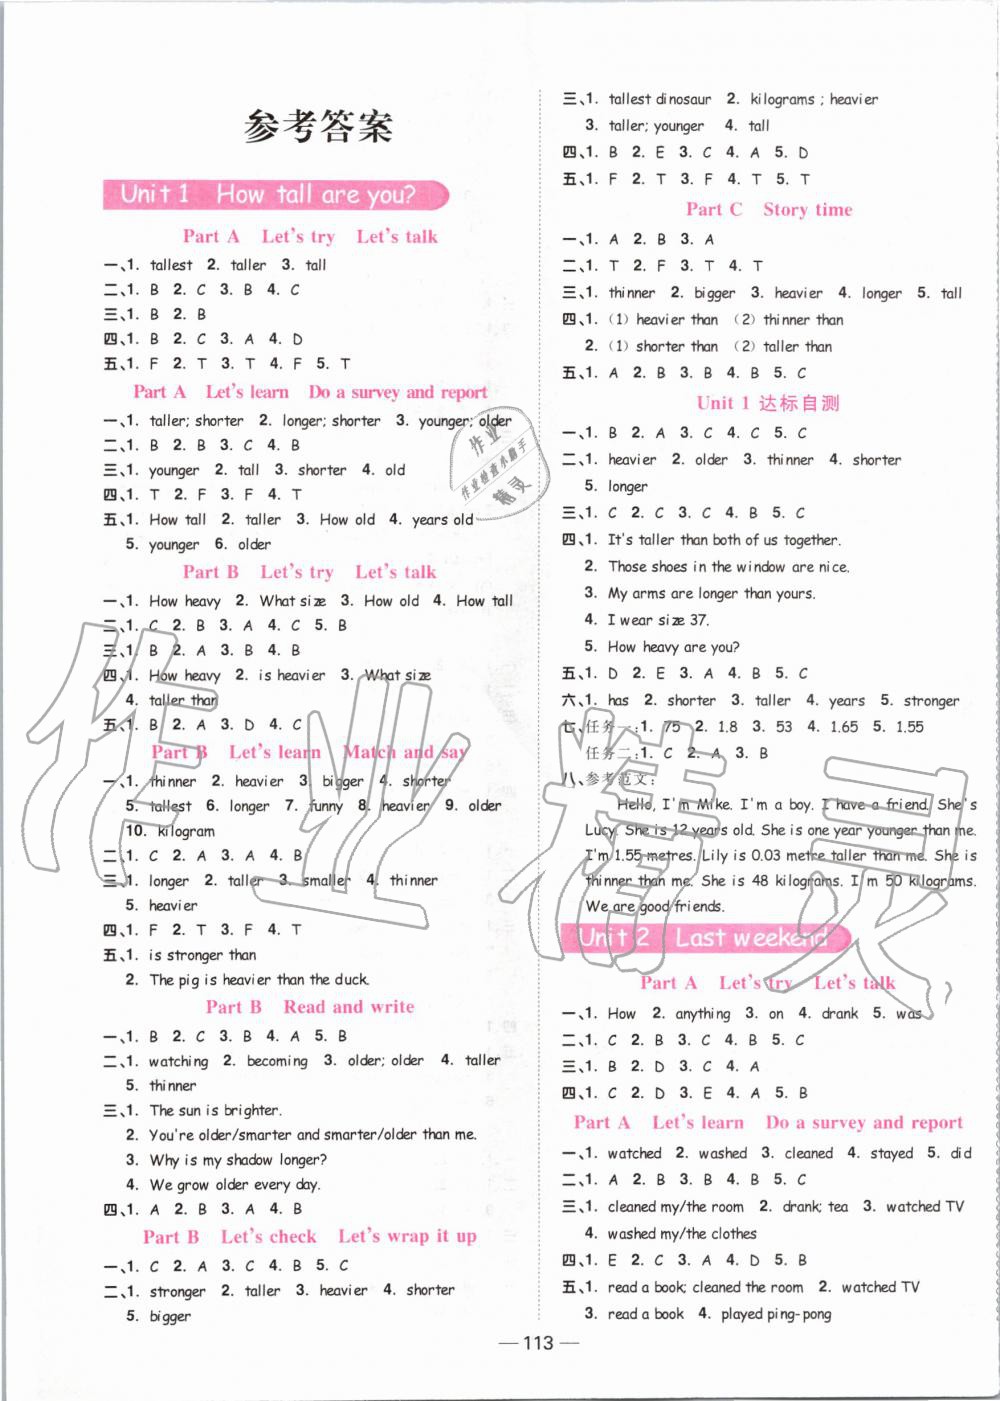 参考答案
Unit 1 How tall are you?
Part A Let's try Let's talk
一、1. tallest 2. taller 3. tall
二、1. B 2. C 3. B 4. C
三、1. B 2. B
四、1. B 2. C 3. A 4. D
五、1. F 2. T 3. T 4. F 5. T
Part A Let's learn Do a survey and report
一、1. taller; shorter 2. longer; shorter 3. younger; older
二、1. B 2. B 3. C 4. B
三、1. younger 2. tall 3. shorter 4. old
四、1. T 2. F 3. F 4. T
五、1. How tall 2. taller 3. How old 4. years old
5. younger 6. older
Part B Let's try Let's talk
一、1. How heavy 2. What size 3. How old 4. How tall
二、1. C 2. B 3. A 4. C 5. B
三、1. B 2. A 3. B 4. B
四、1. How heavy 2. is heavier 3. What size
4. taller than
五、1. B 2. A 3. D 4. C
Part B Let's learn Match and say
一、1. thinner 2. heavier 3. bigger 4. shorter
5. tallest 6. longer 7. funny 8. heavier 9. older
10. kilogram
二、1. C 2. A 3. A 4. B
三、1. longer 2. taller 3. smaller 4. thinner
5. heavier
四、1. F 2. T 3. F 4. T
五、1. is stronger than
2. The pig is heavier than the duck.
Part B Read and write
一、1. B 2. C 3. B 4. A 5. B
二、1. watching 2. becoming 3. older; older 4. taller
5. thinner
三、1. The sun is brighter.
2. You're older/smarter and smarter/older than me.
3. Why is my shadow longer?
4. We grow older every day.
四、1. A 2. B 3. A 4. B
Part B Let's check Let's wrap it up
一、1. C 2. A 3. C 4. B 5. C
二、1. stronger 2. taller 3. heavier 4. shorter
5. bigger
三、1. tallest dinosaur 2. kilograms; heavier
3. taller; younger 4. tall
四、1. B 2. E 3. C 4. A 5. D
五、1. F 2. T 3. F 4. T 5. T
Part C Story time
一、1. A 2. B 3. A
二、1. T 2. F 3. T 4. T
三、1. thinner 2. bigger 3. heavier 4. longer 5. tall
四、1. (1) heavier than (2) thinner than
2. (1) shorter than (2) taller than
五、1. A 2. B 3. B 4. B 5. C
Unit 1 达标自测
一、1. B 2. A 3. C 4. C 5. C
二、1. heavier 2. older 3. thinner 4. shorter
5. longer
三、1. C 2. C 3. C 4. B 5. C
四、1. It's taller than both of us together.
2. Those shoes in the window are nice.
3. My arms are longer than yours.
4. I wear size 37.
5. How heavy are you?
五、1. D 2. E 3. A 4. B 5. C
六、1. has 2. shorter 3. taller 4. years 5. stronger
七、任务一:1. 75 2. 1.8 3. 53 4. 1.65 5. 1.55
任务二:1. C 2. A 3. B
八、参考范文:
Hello, I'm Mike. I'm a boy. I have a friend. She's
Lucy. She is 12 years old. She is one year younger than me.
I'm 1.55 metres. Lily is 0.03 metre taller than me. She is
thinner than me. She is 48 kilograms. I'm 50 kilograms.
We are good friends.
Unit 2 Last weekend
Part A Let's try Let's talk
一、1. How 2. anything 3. on 4. drank 5. was
二、1. C 2. B 3. C 4. B 5. C
三、1. B 2. D 3. C 4. A
四、1. C 2. D 3. E 4. A 5. B
Part A Let's learn Do a survey and report
一、1. watched 2. washed 3. cleaned 4. stayed 5. did
二、1. A 2. B 3. B 4. C
三、1. cleaned my/the room 2. drank; tea 3. watched TV
4. washed my/the clothes
四、1. E 2. C 3. A 4. D 5. B
五、1. read a book; cleaned the room 2. watched TV
3. read a book 4. played ping-pong
— 113 —
作业精灵
作业
作业检查小助手
精灵